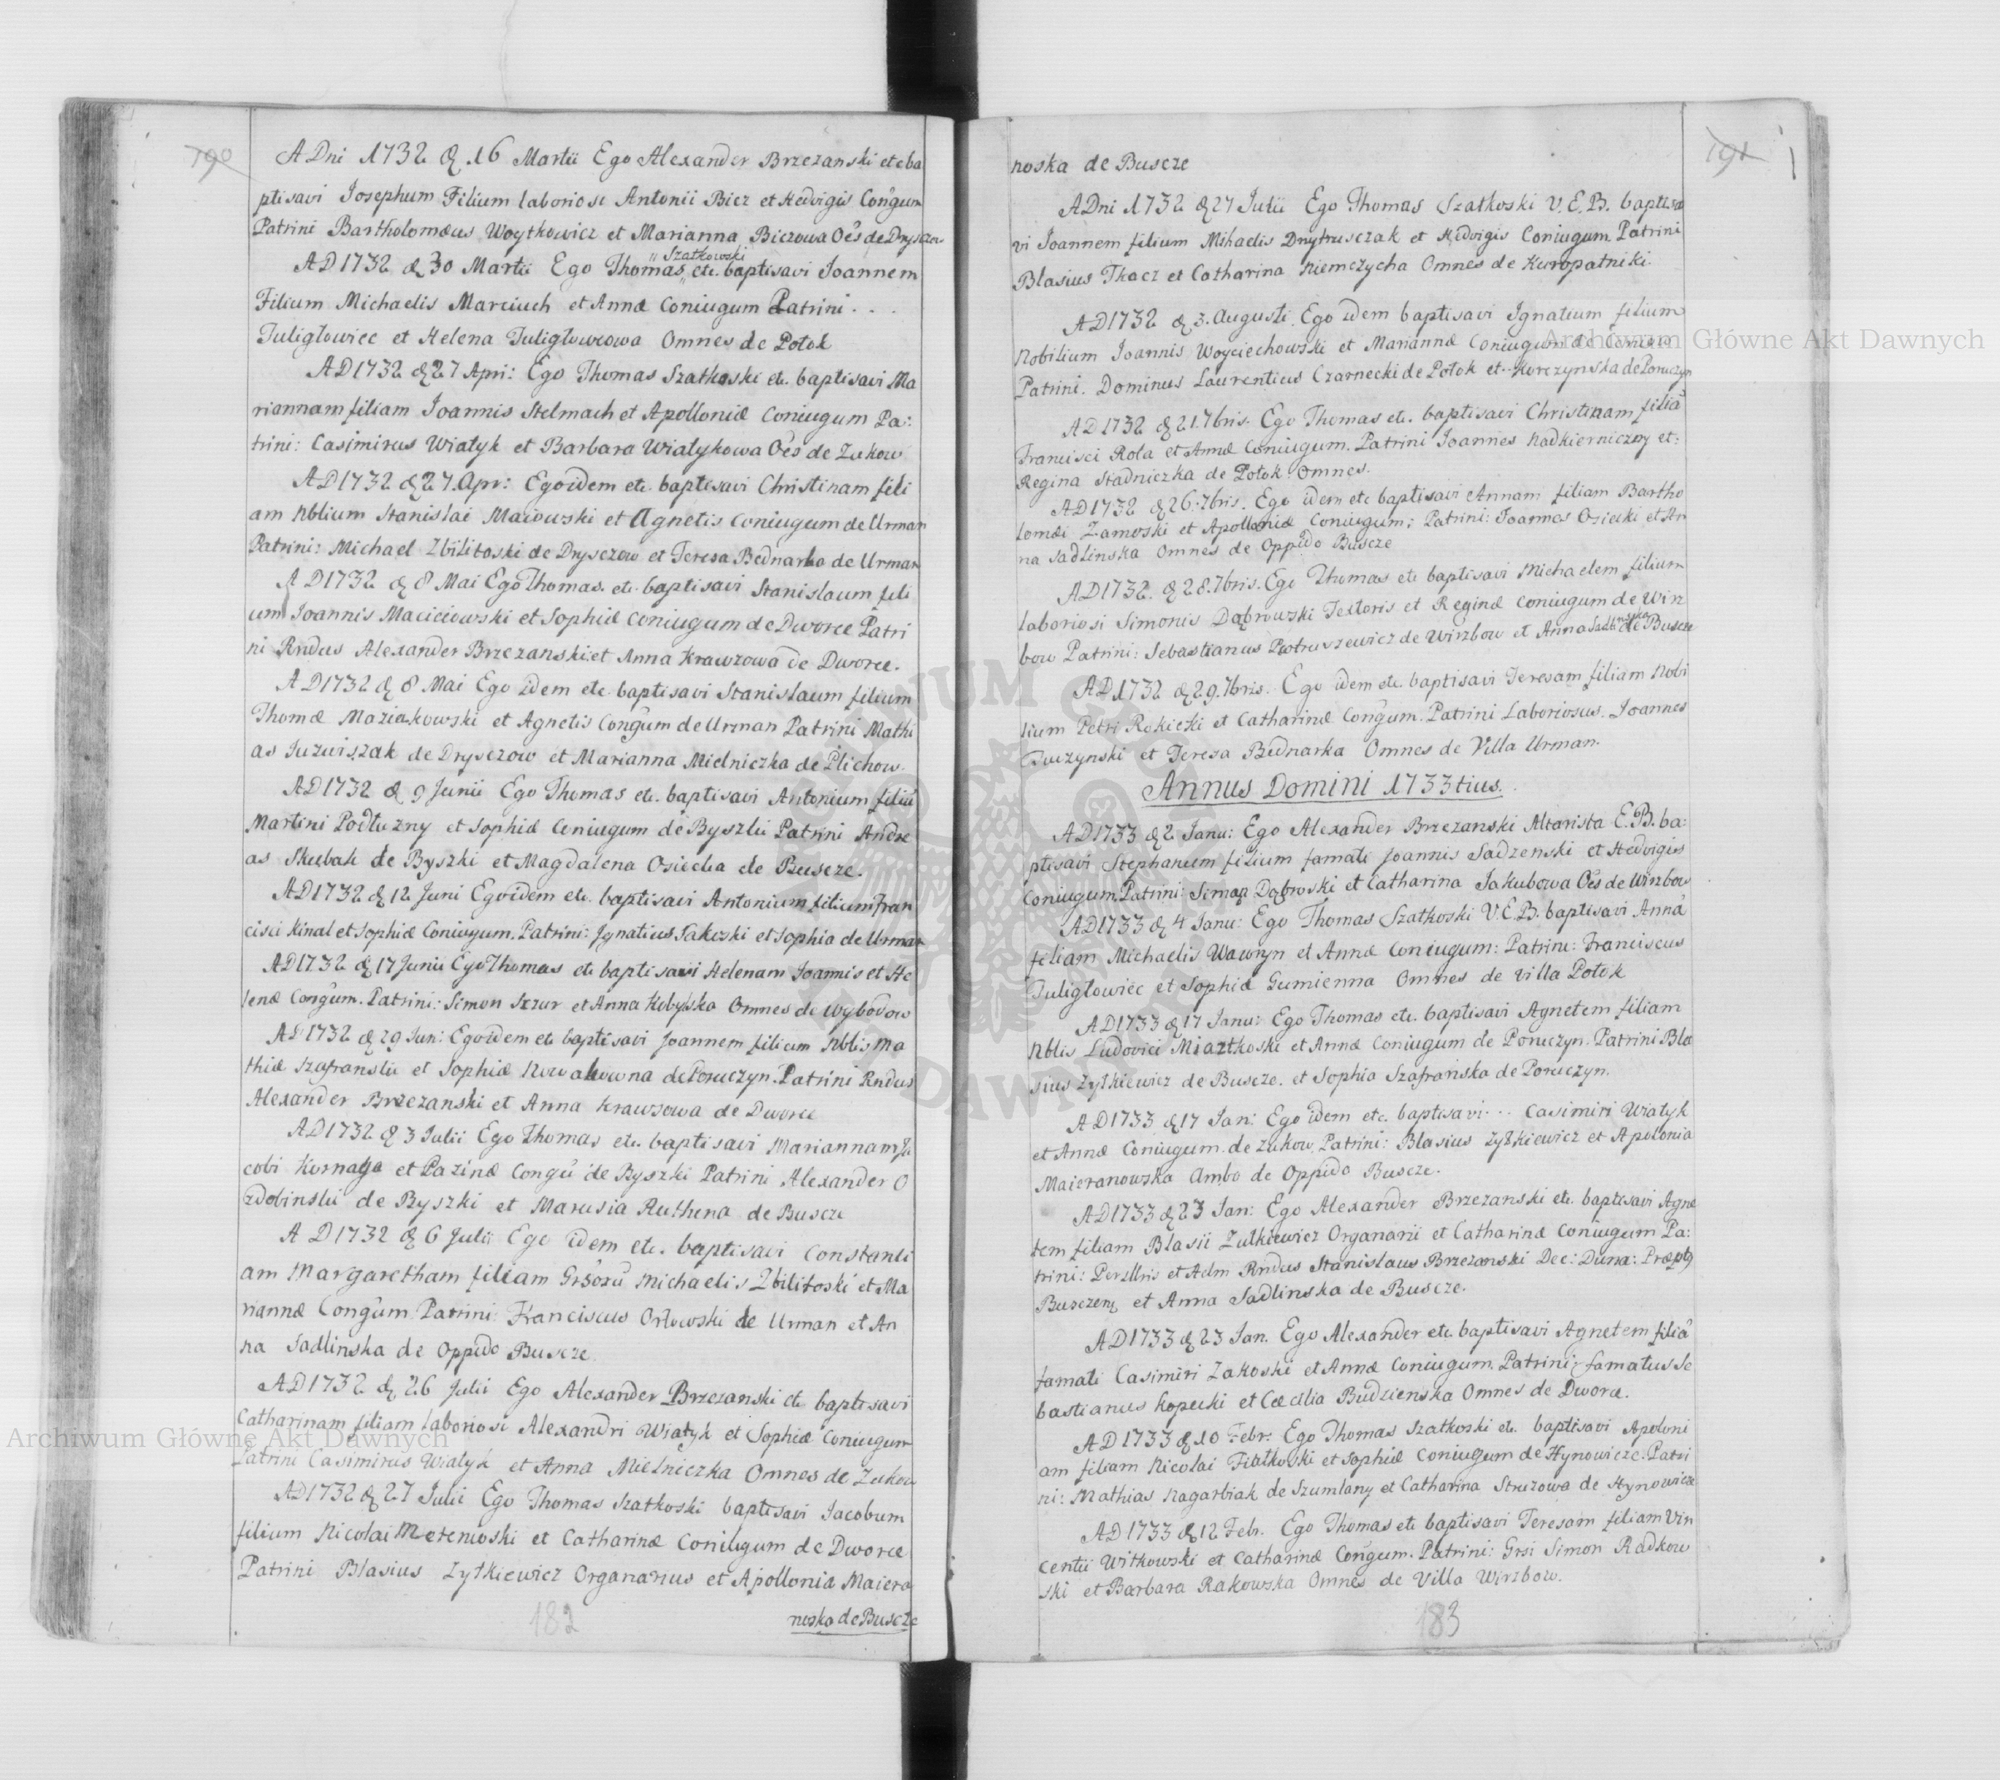 190
ADni 1732 d. 16 Martii Ego Alexander Brzezanski etc ba
ptisavi Josephum Filium laboriosi Antonii Bicz et Hedvigis Congum
Patrini Bartholomæus Woytkowicz et Marianna Biczowa Oēs de Dryszczow
Szatkowski
AD 1732 d 30 Martii Ego Thomas etc. baptisavi Joannem
Filium Michaelis Marciuch et Annæ Coniugum Patrini . . . .
Tuligłowiec et Helena Tuligłowcowa Omnes de Potok
AD 1732 d 27 Apri: Ego Thomas Szatkoski etc. baptisavi Ma
riannam filiam Joannis Stelmach et Apolloniæ Coniugum Pa:
trini: Casimirus Wiatyk et Barbara Wiatykowa Oēs de Zukow
AD 1732 d 27. Apr: Ego idem etc. baptisavi Christinam fili
am Nblium Stanislai Maiowski et Agnetis Coniugum de Urman
Patrini: Michael Zbilitoski de Drysczow et Teresa Bednarka de Urman
AD 1732 d 8 Mai Ego Thomas. etc. baptisavi Stanislaum fili
um Joannis Macieiowski et Sophiæ Coniugum de Dworce Patri
ni Rndus Alexander Brzezanski et Anna Krawzowa de Dworce.
AD 1732 d 8 Mai Ego idem etc. baptisavi Stanislaum filium
Thomæ Maziakowski et Agnetis Congum de Urman Patrini Mathi
as Juzwiszak de Drysczow et Marianna Mielniczka de Plichow.
AD 1732 d 9 Junii Ego Thomas etc. baptisavi Antonium filiū
Martini Podłuzny et Sophiæ Coniugum de Byszki Patrini Andre
as Skubak de Byszki et Magdalena Osiecka de Buscze.
AD 1732 d 12 Juni Ego idem etc. baptisavi Antonium filium Fran
cisci Kinal et Sophiæ Coniugum. Patrini: Jgnatius Sakoski et Sophia de Urman
AD 1732 d 17 Junii Ego Thomas etc baptisavi Helenam Joannis et He
lenæ Congum. Patrini: Simon Szzur et Anna Kobylska Omnes de Wybodow
AD 1732 d 29 Jun: Ego idem etc baptisavi Joannem filium Nblis Ma
thiæ Szafranski et Sophiæ Nowakowna de Poruczyn. Patrini Rndus
Alexander Brzezanski et Anna Krawsowa de Dworce
AD 1732 d 3 Julii Ego Thomas etc. baptisavi Mariannam Ja
cobi Kornaga et Pazinæ Congū de Byszki Patrini Alexander O
zdobinski de Byszki et Marusia Ruthena de Buscze
AD 1732 d 6 Julii Ego idem etc. baptisavi Constanti
am Margaretham filiam Grsorū Michaelis Zbilitoski et Ma
riannæ Congum Patrini: Franciscus Orłowski de Urman et An
na Sadlinska de Oppido Buscze.
AD 1732 d 26 Julii Ego Alexander Brzezanski etc baptisavi
Catharinam filiam laboriosi Alexandri Wiatyk et Sophiæ Coniugum
Patrini Casimirus Wiatyk et Anna Mielniczka Omnes de Zukow
AD 1732 d 27 Julii Ego Thomas Szatkoski baptisavi Jacobum
filium Nicolai Metenioski et Catharinæ Coniugum de Dworce
Patrini Blasius Zytkiewicz Organarius et Apollonia Maiera
noska de Buscze
182
191
noska de Buscze
ADni 1732 d 27 Julii Ego Thomas Szatkoski V.E.B. baptisa
vi Joannem filium Mihaelis Dmytrusczak et Hedvigis Coniugum Patrini
Blasius Tkacz et Catharina Niemczycha Omnes de Kuropatniki.
AD 1732 d 3. Augusti. Ego idem baptisavi Ignatium filium
Nobilium Joannis Woyciechowski et Mariannæ Coniugum de
Patrini. Dominus Laurentius Czarnecki de Potok et .. Korczynska de Poruczyn
AD 1732 d 21. 7bris. Ego Thomas etc. baptisavi Christinam filiā
Francisci Rola et Annæ Coniugum. Patrini Joannes Nadkierniczny et:
Regina Stadniczka de Potok Omnes.
AD 1732 d 26. 7bris. Ego idem etc baptisavi Annam filiam Bartho
lomæi Zamoski et Apolloniæ Coniugum; Patrini: Joannes Osiecki et An
na Sadlinska Omnes de Oppido Buscze
AD 1732. d 28. 7bris. Ego Thomas etc baptisavi Michaelem filium
laboriosi Simonis Dąbrowski Textoris et Reginæ Coniugum de Wirz
bow Patrini: Sebastianus Piotruszewicz de Wirzbow et Anna Sadlinska de Buscze
AD 1732 d 29. 7bris.. Ego idem etc. baptisavi Teresam filiam Nobi
lium Petri Rokicki et Catharinæ Congum. Patrini Laboriosus. Joannes
Tuczynski et Teresa Bednarka Omnes de Villa Urman.
Annus Domini 1733tius.
AD 1733 d 2 Janu: Ego Alexander Brzezanski Altarista E.B. ba:
ptisavi Stephanum filium famati Joannis Sadzenski et Hedvigis
Coniugum Patrini: Simon Dąbroski et Catharina Jakubowa Oēs de Wirzbow
AD 1733 d 4 Janu: Ego Thomas Szatkoski V.E.B. baptisavi Annā
filiam Michaelis Wawryn et Annæ Coniugum: Patrini: Franciscus
Tuligłowiec et Sophia Gumienna Omnes de villa Potok
AD 1733 d 17 Janu: Ego Thomas etc. baptisavi Agnetem filiam
Nblis Ludovici Miaztkoski et Annæ Coniugum de Poruczyn. Patrini Bla
sius Zytkiewicz de Buscze. et Sophia Szafranska de Poruczyn.
AD 1733 d 17 Jan: Ego idem etc. baptisavi . . . Casimiri Wiatyk
et Annæ Coniugum. de Zukow. Patrini: Blasius Zytkiewicz et Apolonia
Maieranowska Ambo de Oppido Buscze.
AD 1733 d 23 Jan: Ego Alexander Brzezanski etc. baptisavi Agne
tem filiam Blasii Zutkiewicz Organarii et Catharinæ Coniugum Pa:
trini: Perillris et Adm Rndus Stanislaus Brzezanski Dec: Duna: Præpts
Busczen et Anna Sadlinska de Buscze.
AD 1733 d 23 Jan. Ego Alexander etc. baptisavi Agnetem filiā
famati Casimiri Zakoski et Annæ Coniugum. Patrini: famatus Se
bastianus Kopecki et Cæcilia Budzienska Omnes de Dworce.
AD 1733 d 10 Febr: Ego Thomas Szatkoski etc. baptisavi Apoloni
am filiam Nicolai Fiałkoski et Sophiæ Coniugum de Hynowicze. Patri
ni: Mathias Nagarbiak de Szumlany et Catharina Struzowa de Hynowicze
AD 1733 d 12 Febr. Ego Thomas etc baptisavi Teresam filiam Vin
centii Witkowski et Catharinæ Congum. Patrini: Grsi Simon Radkow
ski et Barbara Rakowska Omnes de Villa Wirzbow.
183
Archiwum Główne Akt Dawnych
Archiwum Główne Akt Dawnych
ARCHIWUM GŁÓWNE AKT DAWNYCH